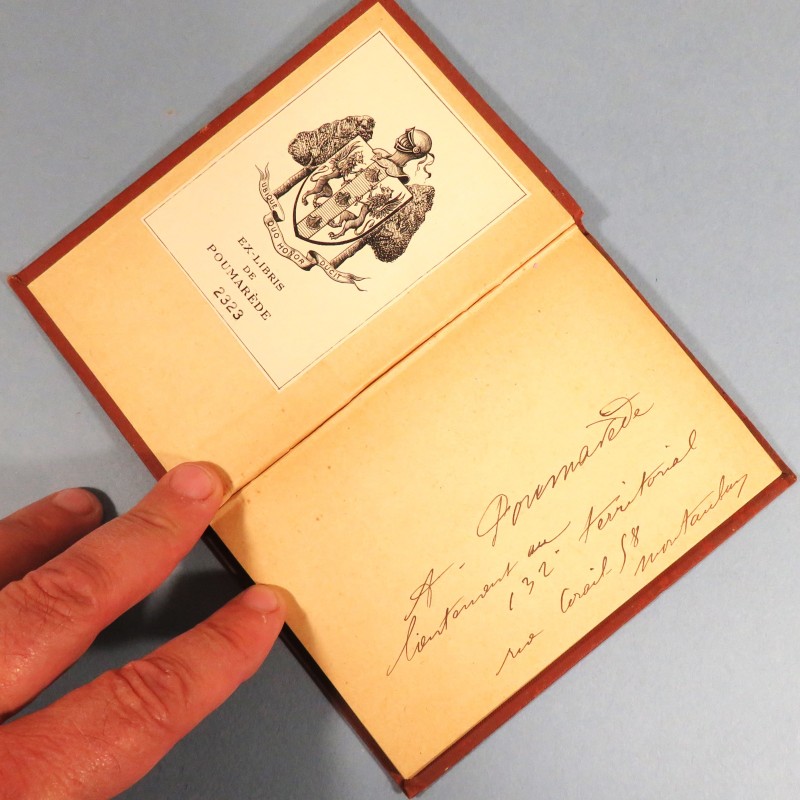 UBIQUE QUO HONOR DUCIT
EX-LIBRIS
DE
POUMARÈDE
2323
A. Poumarède
lieutenant au
132e territorial
rue Corail 58
Montauban